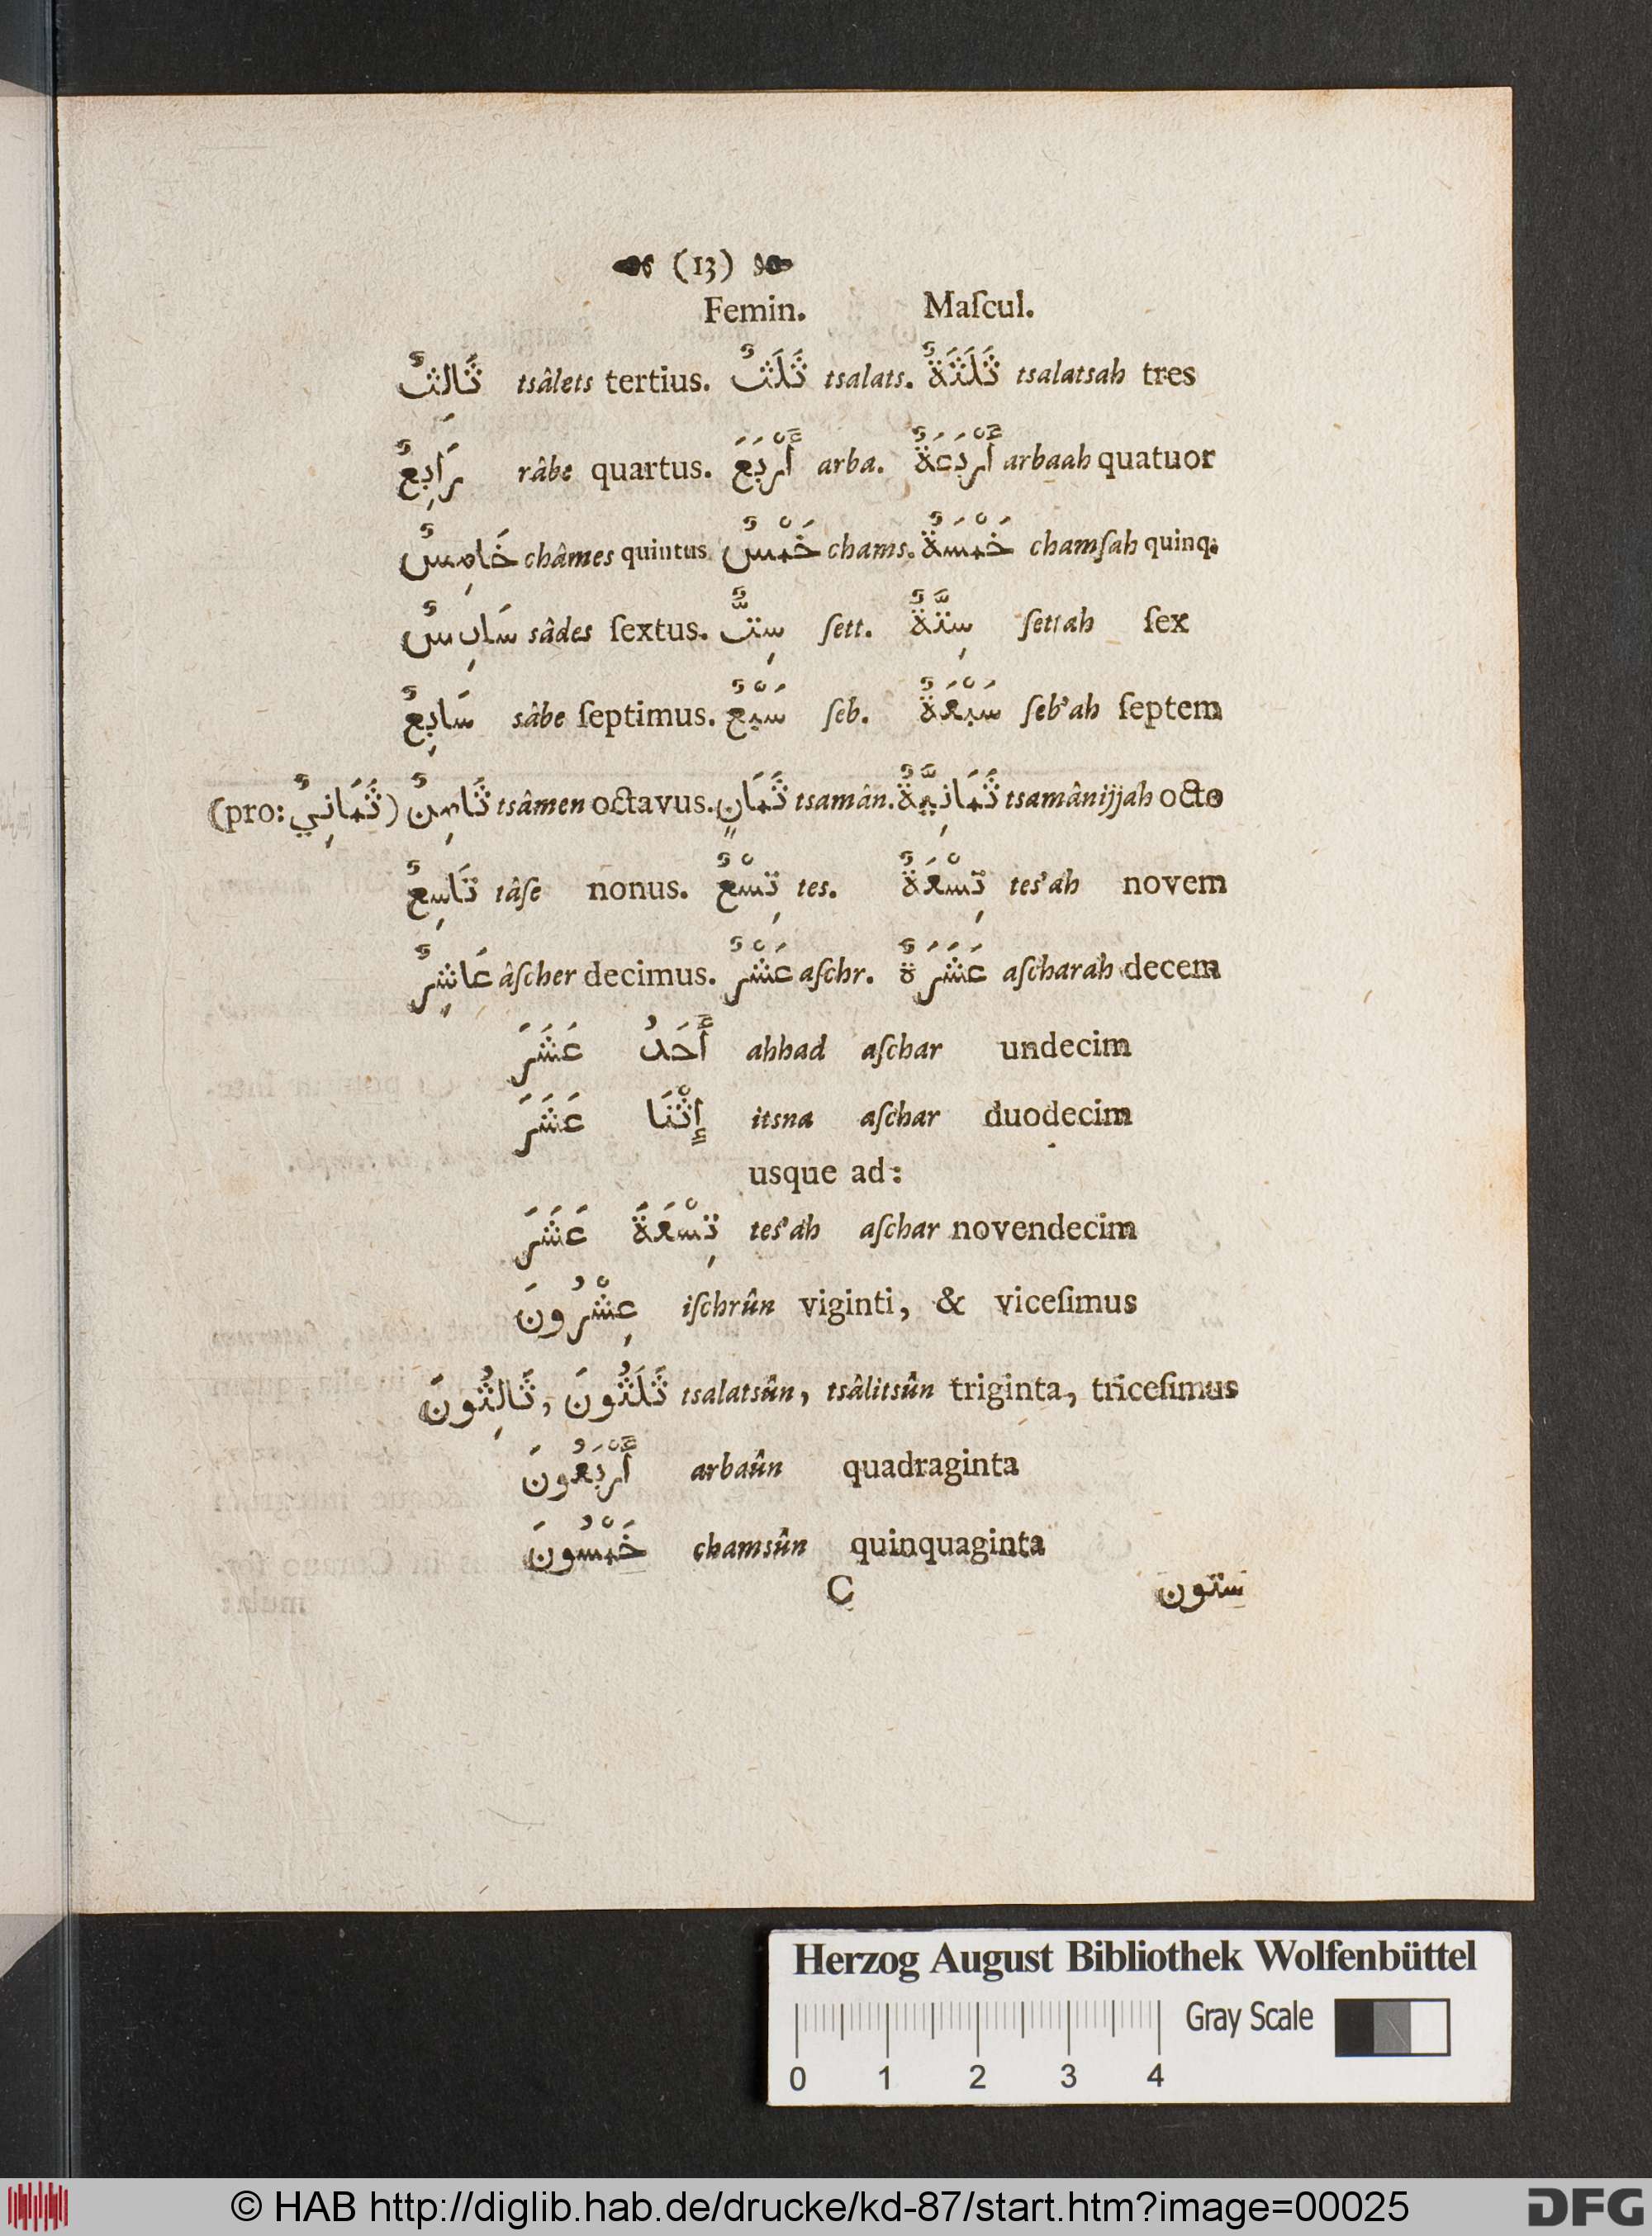 (13)
Femin. Maſcul.
ثَالثٌ tsâlets tertius. ثَلَثٌ tsalats. ثَلَثَةٌ tsalatsah tres
رَابِعٌ râbe quartus. أَرْبَعَ arba. أَرْبَعَةٌ arbaah quatuor
خَامِسٌ châmes quintus. خَمْسٌ chams. خَمْسَةٌ chamſah quinq;
سَادِسٌ sâdes ſextus. سِتٌّ ſett. سِتَّةٌ ſettah ſex
سَابِعٌ sâbe ſeptimus. سَبْعٌ ſeb. سَبْعَةٌ ſeb'ah ſeptem
(pro: ثَمَانِيٌ) ثَامِنٌ tsâmen octavus. ثَمَانٍ tsamân. ثَمَانِيَّةٌ tsamânijjah octo
تَاسِعٌ tâſe nonus. تِسْعٌ tes. تِسْعَةٌ tes'ah novem
عَاشِرٌ âſcher decimus. عَشْرٌ aſchr. عَشَرَةٌ aſcharah decem
عَشَرَ أَحَدُ ahhad aſchar undecim
عَشَرَ إِثْنَا itsna aſchar duodecim
usque ad:
عَشَرَ تِسْعَةَ tes'ah aſchar novendecim
عِشْرُونَ iſchrûn viginti, & viceſimus
ثَالِثُونَ, ثَلَثُونَ tsalatsûn, tsâlitsûn triginta, triceſimus
أَرْبَعُونَ arbaûn quadraginta
خَمْسُونَ chamsûn quinquaginta
C ستون
Herzog August Bibliothek Wolfenbüttel
Gray Scale
0 1 2 3 4
© HAB http://diglib.hab.de/drucke/kd-87/start.htm?image=00025 DFG